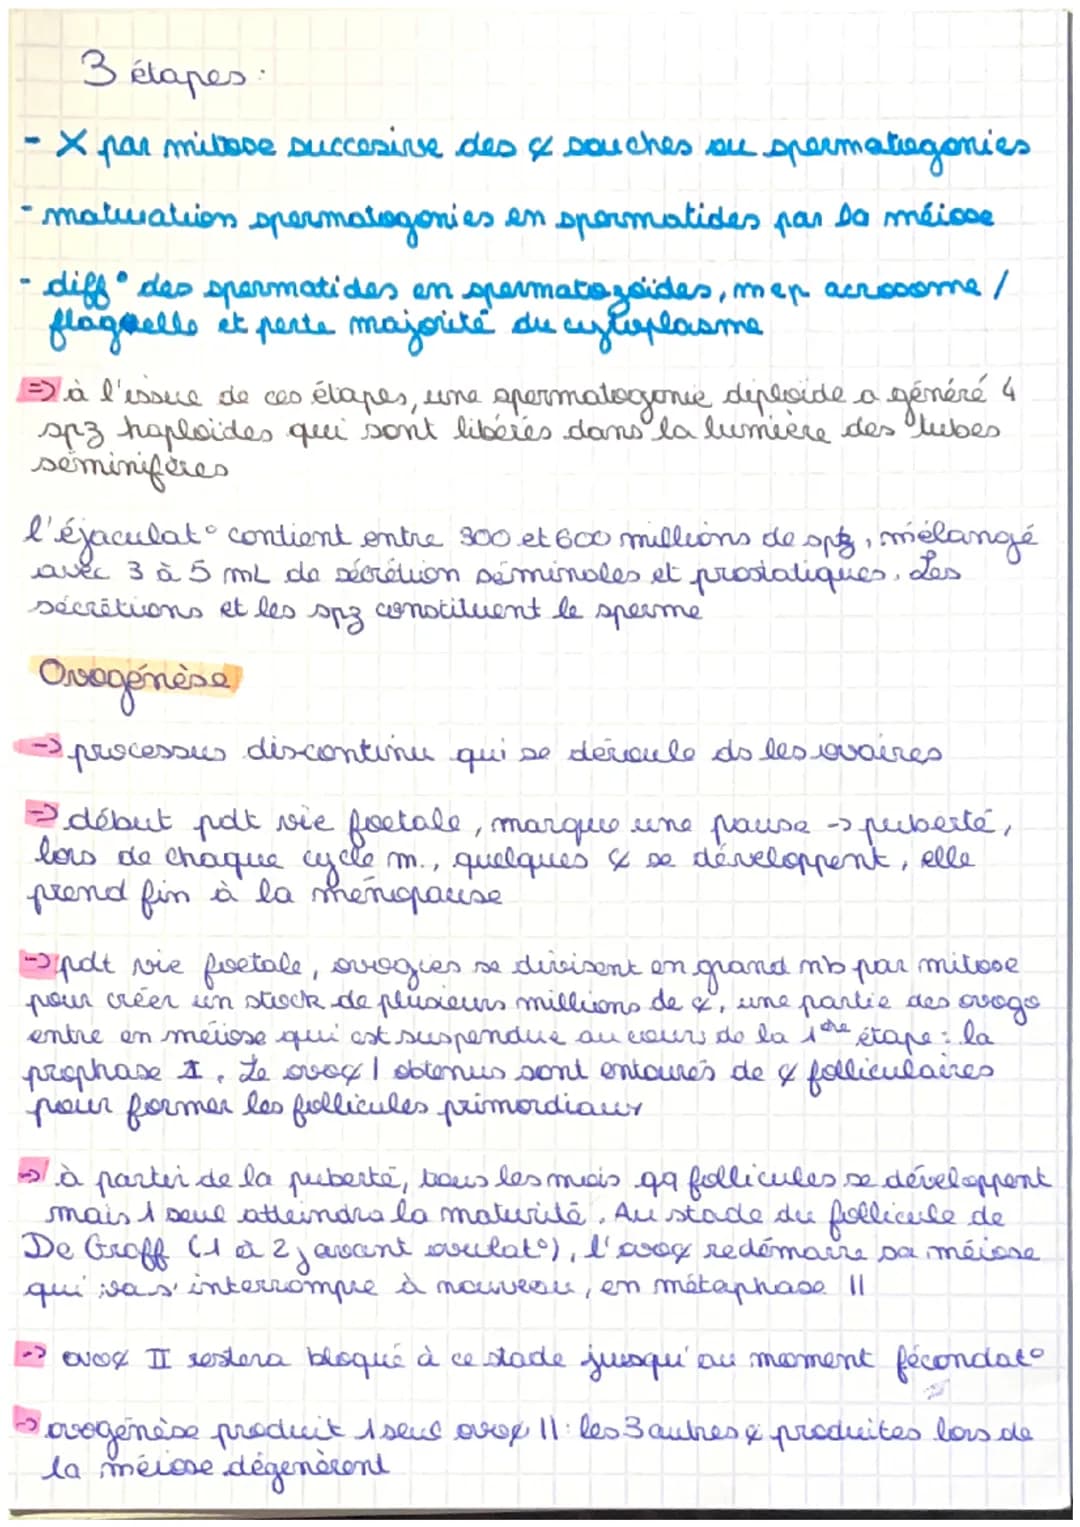 3 étapes :
- X par mitose succesive des ȼ souches ou spermatogonies
- maturation spermatogonies en spermatides par la méiose
- diff° des spermatides en spermatozoïdes, mep acrosome /
flagelle et perte majorité du cytoplasme
=> à l'issue de ces étapes, une spermatogonie diploïde a généré 4
spz haploïdes qui sont libérés dans la lumière des tubes
séminifères
l'éjaculat° contient entre 300 et 600 millions de spz, mélangé
avec 3 à 5 mL de sécrétion séminales et prostatiques. Les
sécrétions et les spz constituent le sperme
Ovogénèse
-> processus discontinu qui se déroule ds les ovaires
-> début pdt vie foetale, marque une pause -> puberté,
lors de chaque cycle m., quelques ȼ se développent, elle
prend fin à la ménopause
-> pdt vie foetale, ovogies se divisent en grand nb par mitose
pour créer un stock de plusieurs millions de ȼ, une partie des ovogo
entre en méiose qui est suspendue au cours de la 1ère étape : la
prophase I. Le ovoȼ I obtenus sont entourés de ȼ folliculaires
pour former les follicules primordiaux
-> à partir de la puberté, tous les mois qq follicules se développent
mais 1 seul atteindra la maturité. Au stade du follicule de
De Graff (1 à 2j avant ovulat°), l'ovoȼ redémarre sa méiose
qui va s'interrompre à nouveau, en métaphase II
-> ovoȼ II restera bloqué à ce stade jusqu'au moment fécondat°
-> ovogénèse produit 1 seul ovoȼ II : les 3 autres ȼ produites lors de
la méiose dégénèrent